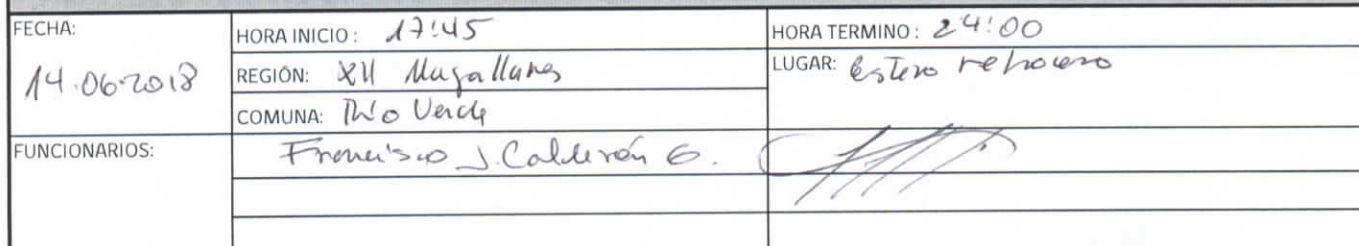 FECHA:
14.06.2018
HORA INICIO : 17:45
HORA TERMINO : 24:00
REGIÓN: XII Magallanes
LUGAR: Estero retroceso
COMUNA: Río Verde
FUNCIONARIOS:
Francisco J. Calderón G.